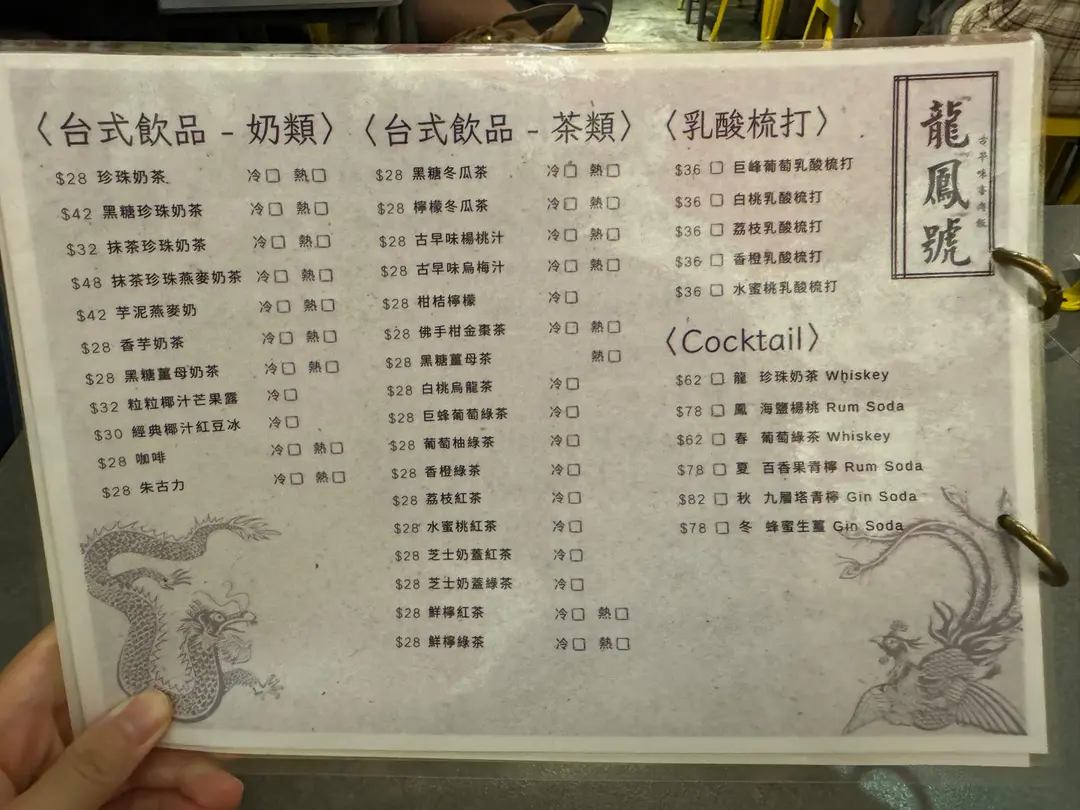 〈台式飲品 - 奶類〉
$28 珍珠奶茶 冷□ 熱□
$42 黑糖珍珠奶茶 冷□ 熱□
$32 抹茶珍珠奶茶 冷□ 熱□
$48 抹茶珍珠燕麥奶茶 冷□ 熱□
$42 芋泥燕麥奶 冷□ 熱□
$28 香芋奶茶 冷□ 熱□
$28 黑糖薑母奶茶 冷□ 熱□
$32 粒粒椰汁芒果露 冷□
$30 經典椰汁紅豆冰 冷□
$28 咖啡 冷□ 熱□
$28 朱古力 冷□ 熱□
〈台式飲品 - 茶類〉
$28 黑糖冬瓜茶 冷□ 熱□
$28 檸檬冬瓜茶 冷□ 熱□
$28 古早味楊桃汁 冷□ 熱□
$28 古早味烏梅汁 冷□ 熱□
$28 柑桔檸檬 冷□
$28 佛手柑金棗茶 冷□ 熱□
$28 黑糖薑母茶 熱□
$28 白桃烏龍茶 冷□
$28 巨峰葡萄綠茶 冷□
$28 葡萄柚綠茶 冷□
$28 香橙綠茶 冷□
$28 荔枝紅茶 冷□
$28 水蜜桃紅茶 冷□
$28 芝士奶蓋紅茶 冷□
$28 芝士奶蓋綠茶 冷□
$28 鮮檸紅茶 冷□ 熱□
$28 鮮檸綠茶 冷□ 熱□
〈乳酸梳打〉
$36 □ 巨峰葡萄乳酸梳打
$36 □ 白桃乳酸梳打
$36 □ 荔枝乳酸梳打
$36 □ 香橙乳酸梳打
$36 □ 水蜜桃乳酸梳打
〈Cocktail〉
$62 □ 龍 珍珠奶茶 Whiskey
$78 □ 鳳 海鹽楊桃 Rum Soda
$62 □ 春 葡萄綠茶 Whiskey
$78 □ 夏 百香果青檸 Rum Soda
$82 □ 秋 九層塔青檸 Gin Soda
$78 □ 冬 蜂蜜生薑 Gin Soda
龍鳳號
古早味